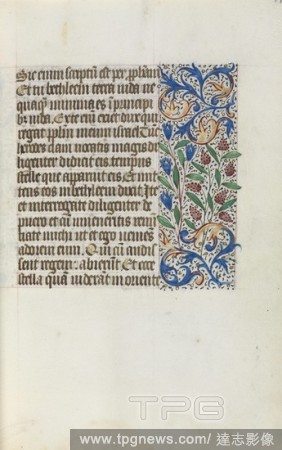 Sic enim scriptū est per pphām
Et tu bethleem terra iuda ne
quaq̄ minima es ī principi
bꝫ iuda. Ex te eni exiet dux qui
regat pplm meum israel. Tūc
herodes clam uocatis magis di
ligenter didicit eis tempus
stelle que apparuit eis. Et mit
tens eos in bethleem dixit. Ite
et interrogate diligenter de
puero et cū inueneritis renū
tiate michi ut et ego ueniens
adorem eum. Qui cū audis
sent regem: abierūt. Et ecce
stella quā uiderant in oriente
TPG
www.tpgnews.com/ 達志影像